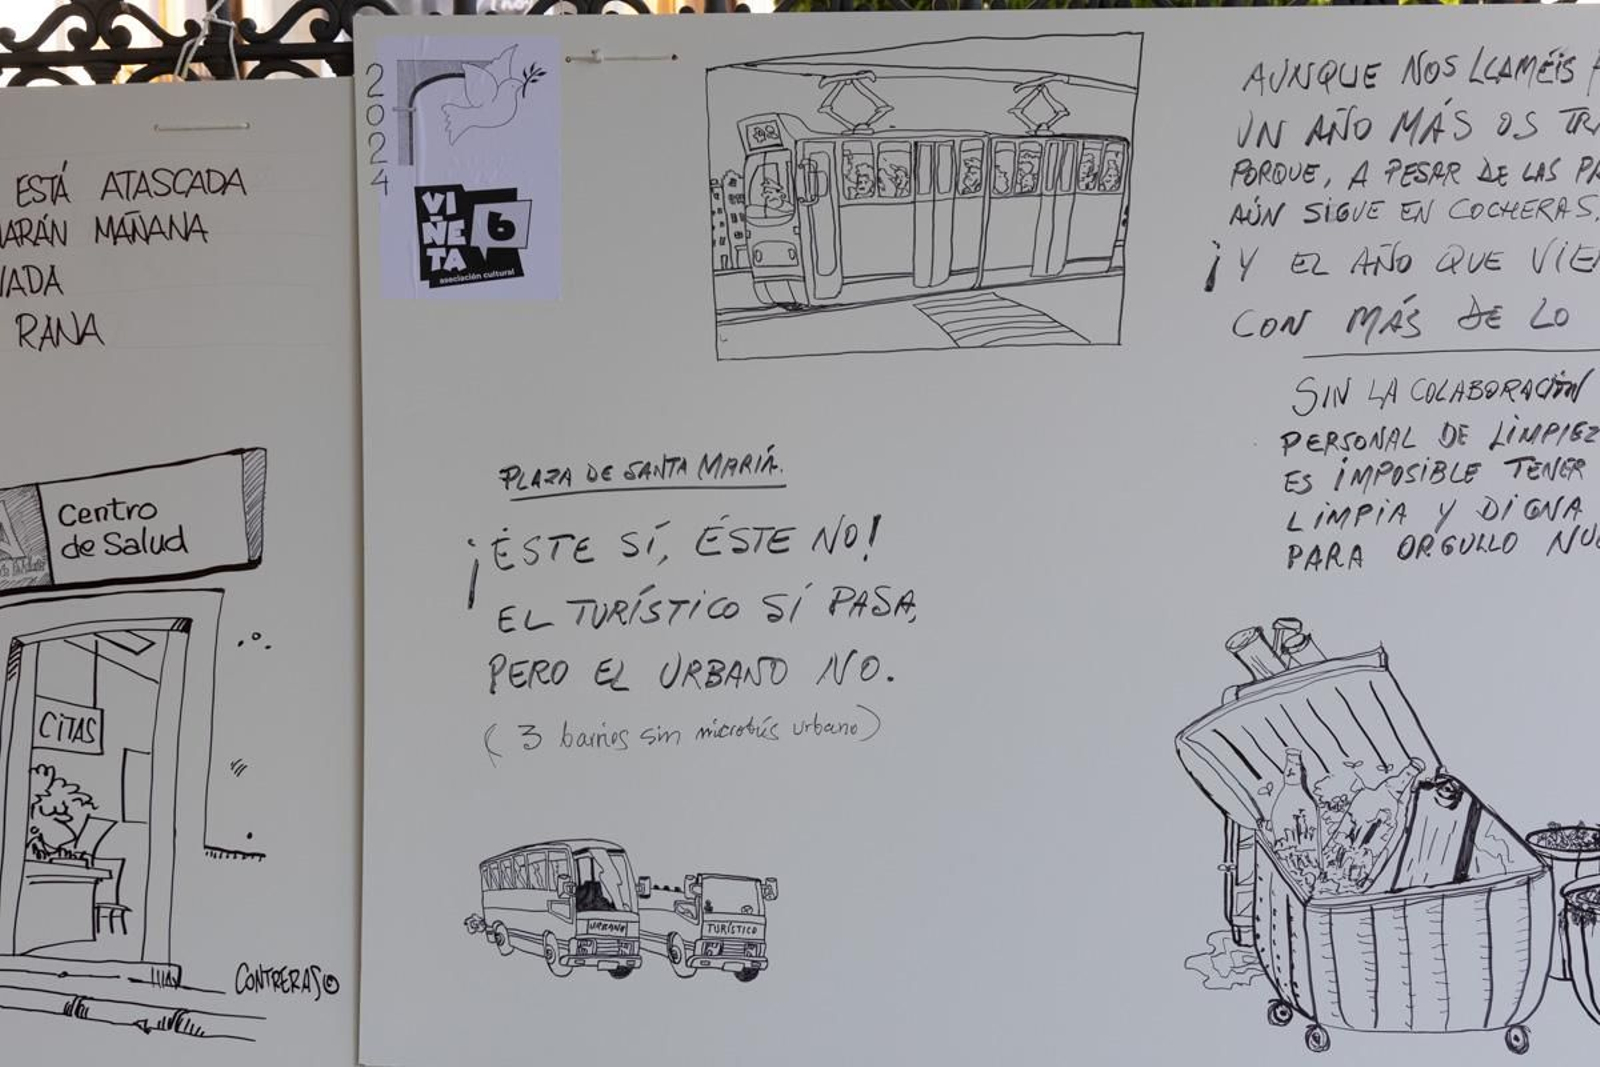 ESTÁ ATASCADA
MAÑANA
RANA
Centro
de Salud
CITAS
CONTRERAS©
2024
VIÑETA 6
asociación cultural
PLAZA DE SANTA MARÍA.
¡ÉSTE SÍ, ÉSTE NO!
EL TURÍSTICO SÍ PASA,
PERO EL URBANO NO.
(3 barrios sin microbús urbano)
URBANO
TURÍSTICO
AUNQUE NOS LLAMÉIS
UN AÑO MÁS OS
PORQUE, A PESAR DE LAS
AÚN SIGUE EN COCHERAS.
¡Y EL AÑO QUE
CON MÁS DE LO
SIN LA COLABORACIÓN
PERSONAL DE
ES IMPOSIBLE TENER
LIMPIA Y DIGNA
PARA ORGULLO